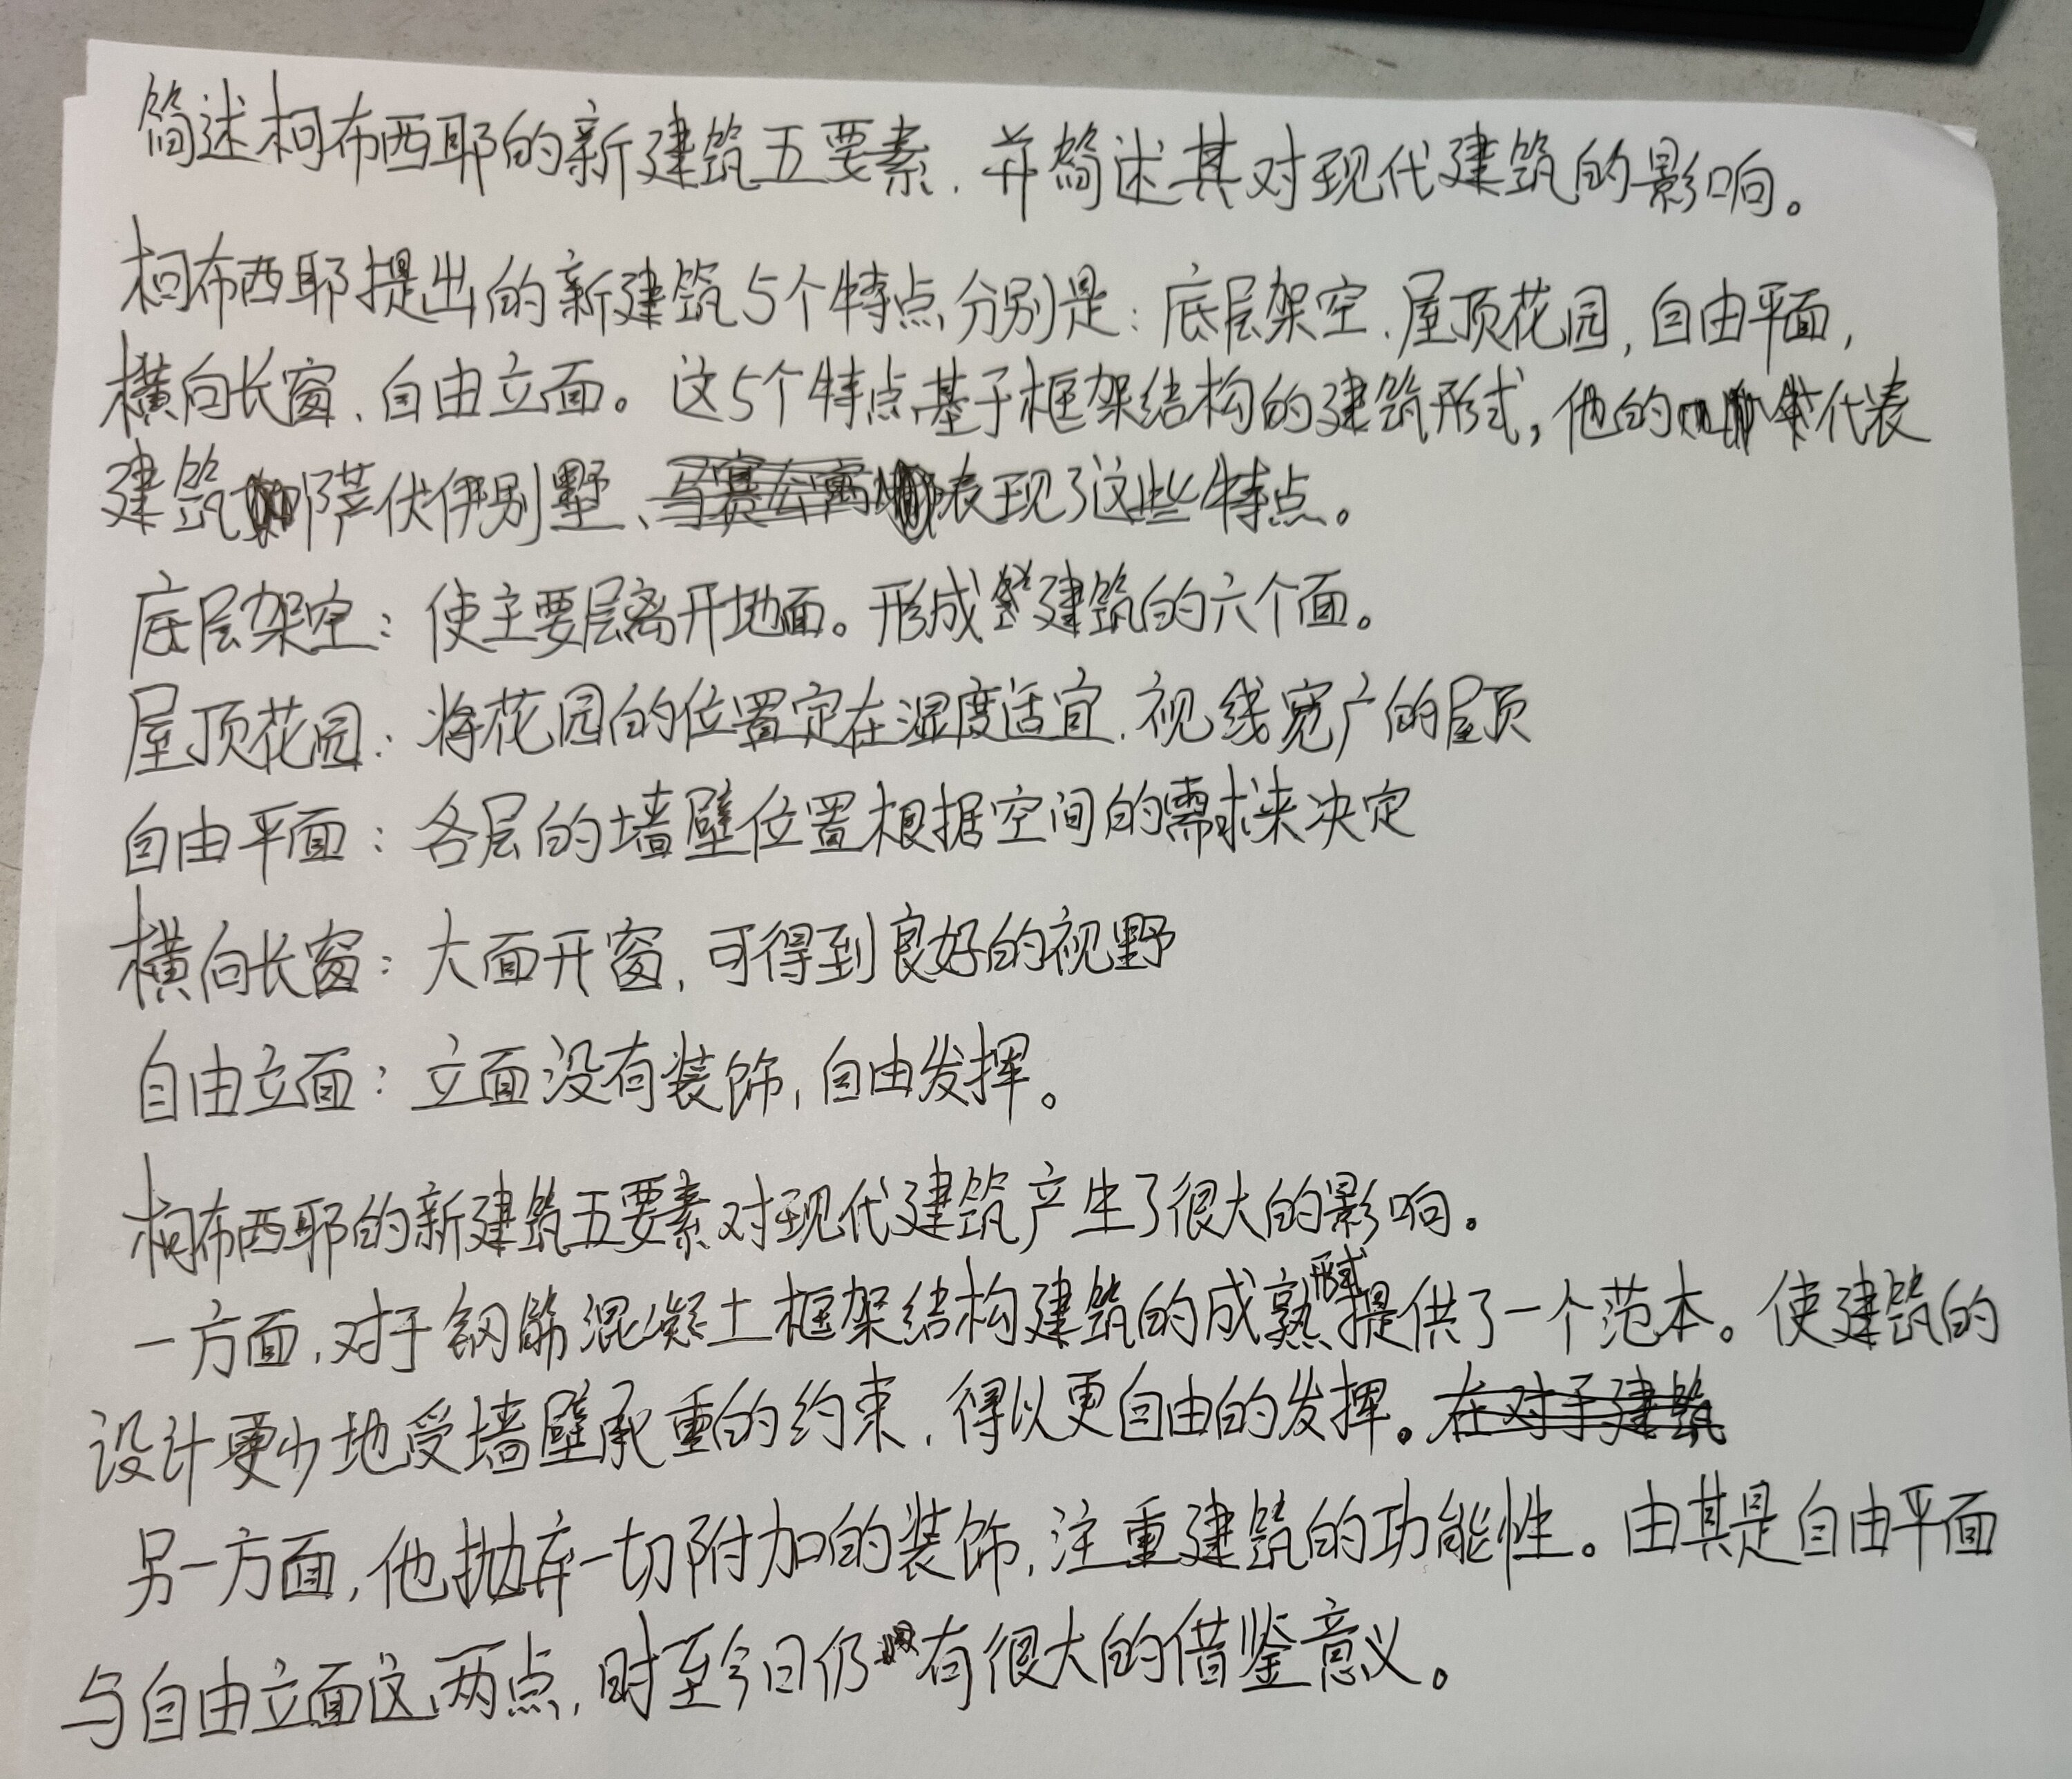 简述柯布西耶的新建筑五要素、并简述其对现代建筑的影响。
柯布西耶提出的新建筑5个特点分别是：底层架空、屋顶花园，自由平面，
横向长窗、自由立面。这5个特点基于框架结构的建筑形式，他的代表
建筑萨伏伊别墅、表现了这些特点。
底层架空：使主要层离开地面。形成建筑的六个面。
屋顶花园：将花园的位置定在湿度适宜、视线宽广的屋顶
自由平面：各层的墙壁位置根据空间的需求来决定
横向长窗：大面开窗，可得到良好的视野
自由立面：立面没有装饰，自由发挥。
柯布西耶的新建筑五要素对现代建筑产生了很大的影响。
一方面，对于钢筋混凝土框架结构建筑的成熟形式提供了一个范本。使建筑的
设计更少地受墙壁承重的约束，得以更自由的发挥。
另一方面，他抛弃一切附加的装饰，注重建筑的功能性。由其是自由平面
与自由立面这两点，时至今日仍有很大的借鉴意义。